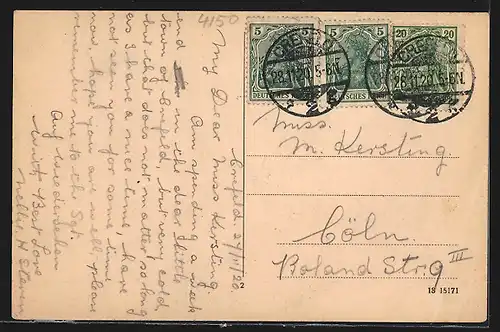 4150
Crefeld 24/11/20.
My Dear Miss Kersting.
Am spending a week
end in the dear little
town of Crefeld, but very cold
but that does not matter, so long
as I have a nice time, have
not seen you for some time
now, hope you are well, please
remember me to the Set.
Auf wiedersehen
with Best Love
Nellie. H
5 5
5 5
20 20
DEUTSCHES
CREFELD
26.11.20.5-6N.
CREFELD
26.11.20.5-6N.
Miss.
M. Kersting
Cöln.
Roland Strs III
2
18 15171